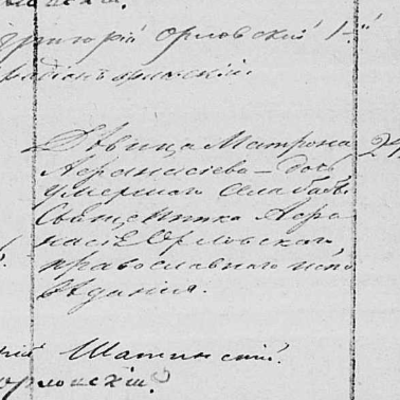 Григорій Орловскій 1-й
Дѣвица Матрона 24
Аѳанасіева – дочь
умершаго
Священника Аѳа-
насія Орловскаго,
православнаго испо
вѣданія.
рій Шатинскій.
орловскій.